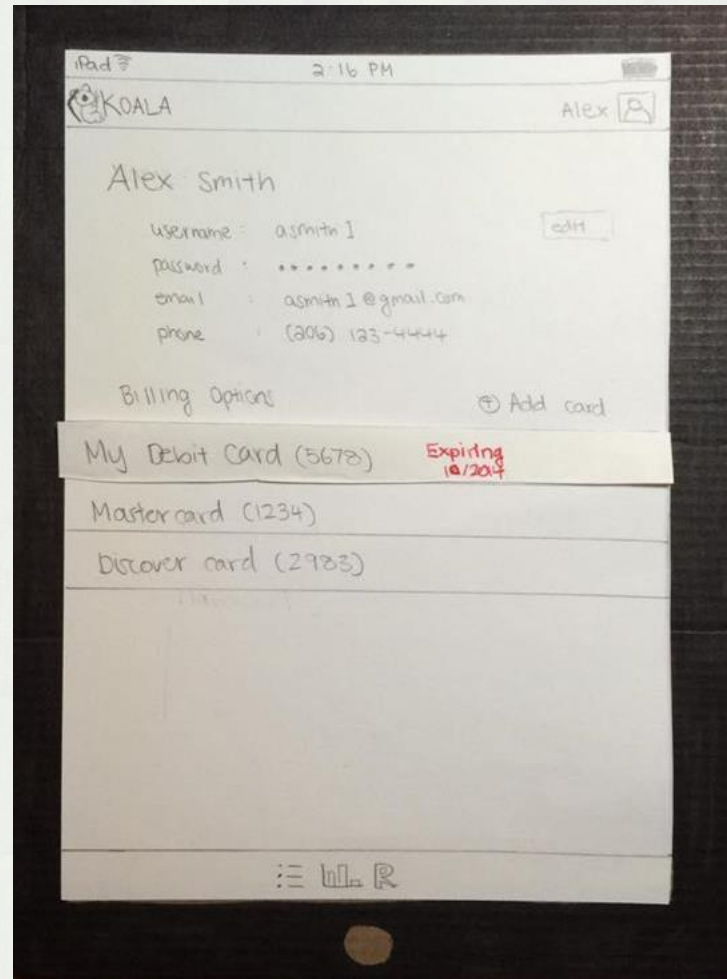 iPad 2:16 PM
KOALA Alex
Alex Smith
username : asmith1 edit
password : •••••••••
email : asmith1@gmail.com
phone : (206) 123-4444
Billing Options + Add card
My Debit Card (5678) Expiring
10/2014
Mastercard (1234)
Discover card (2983)
R